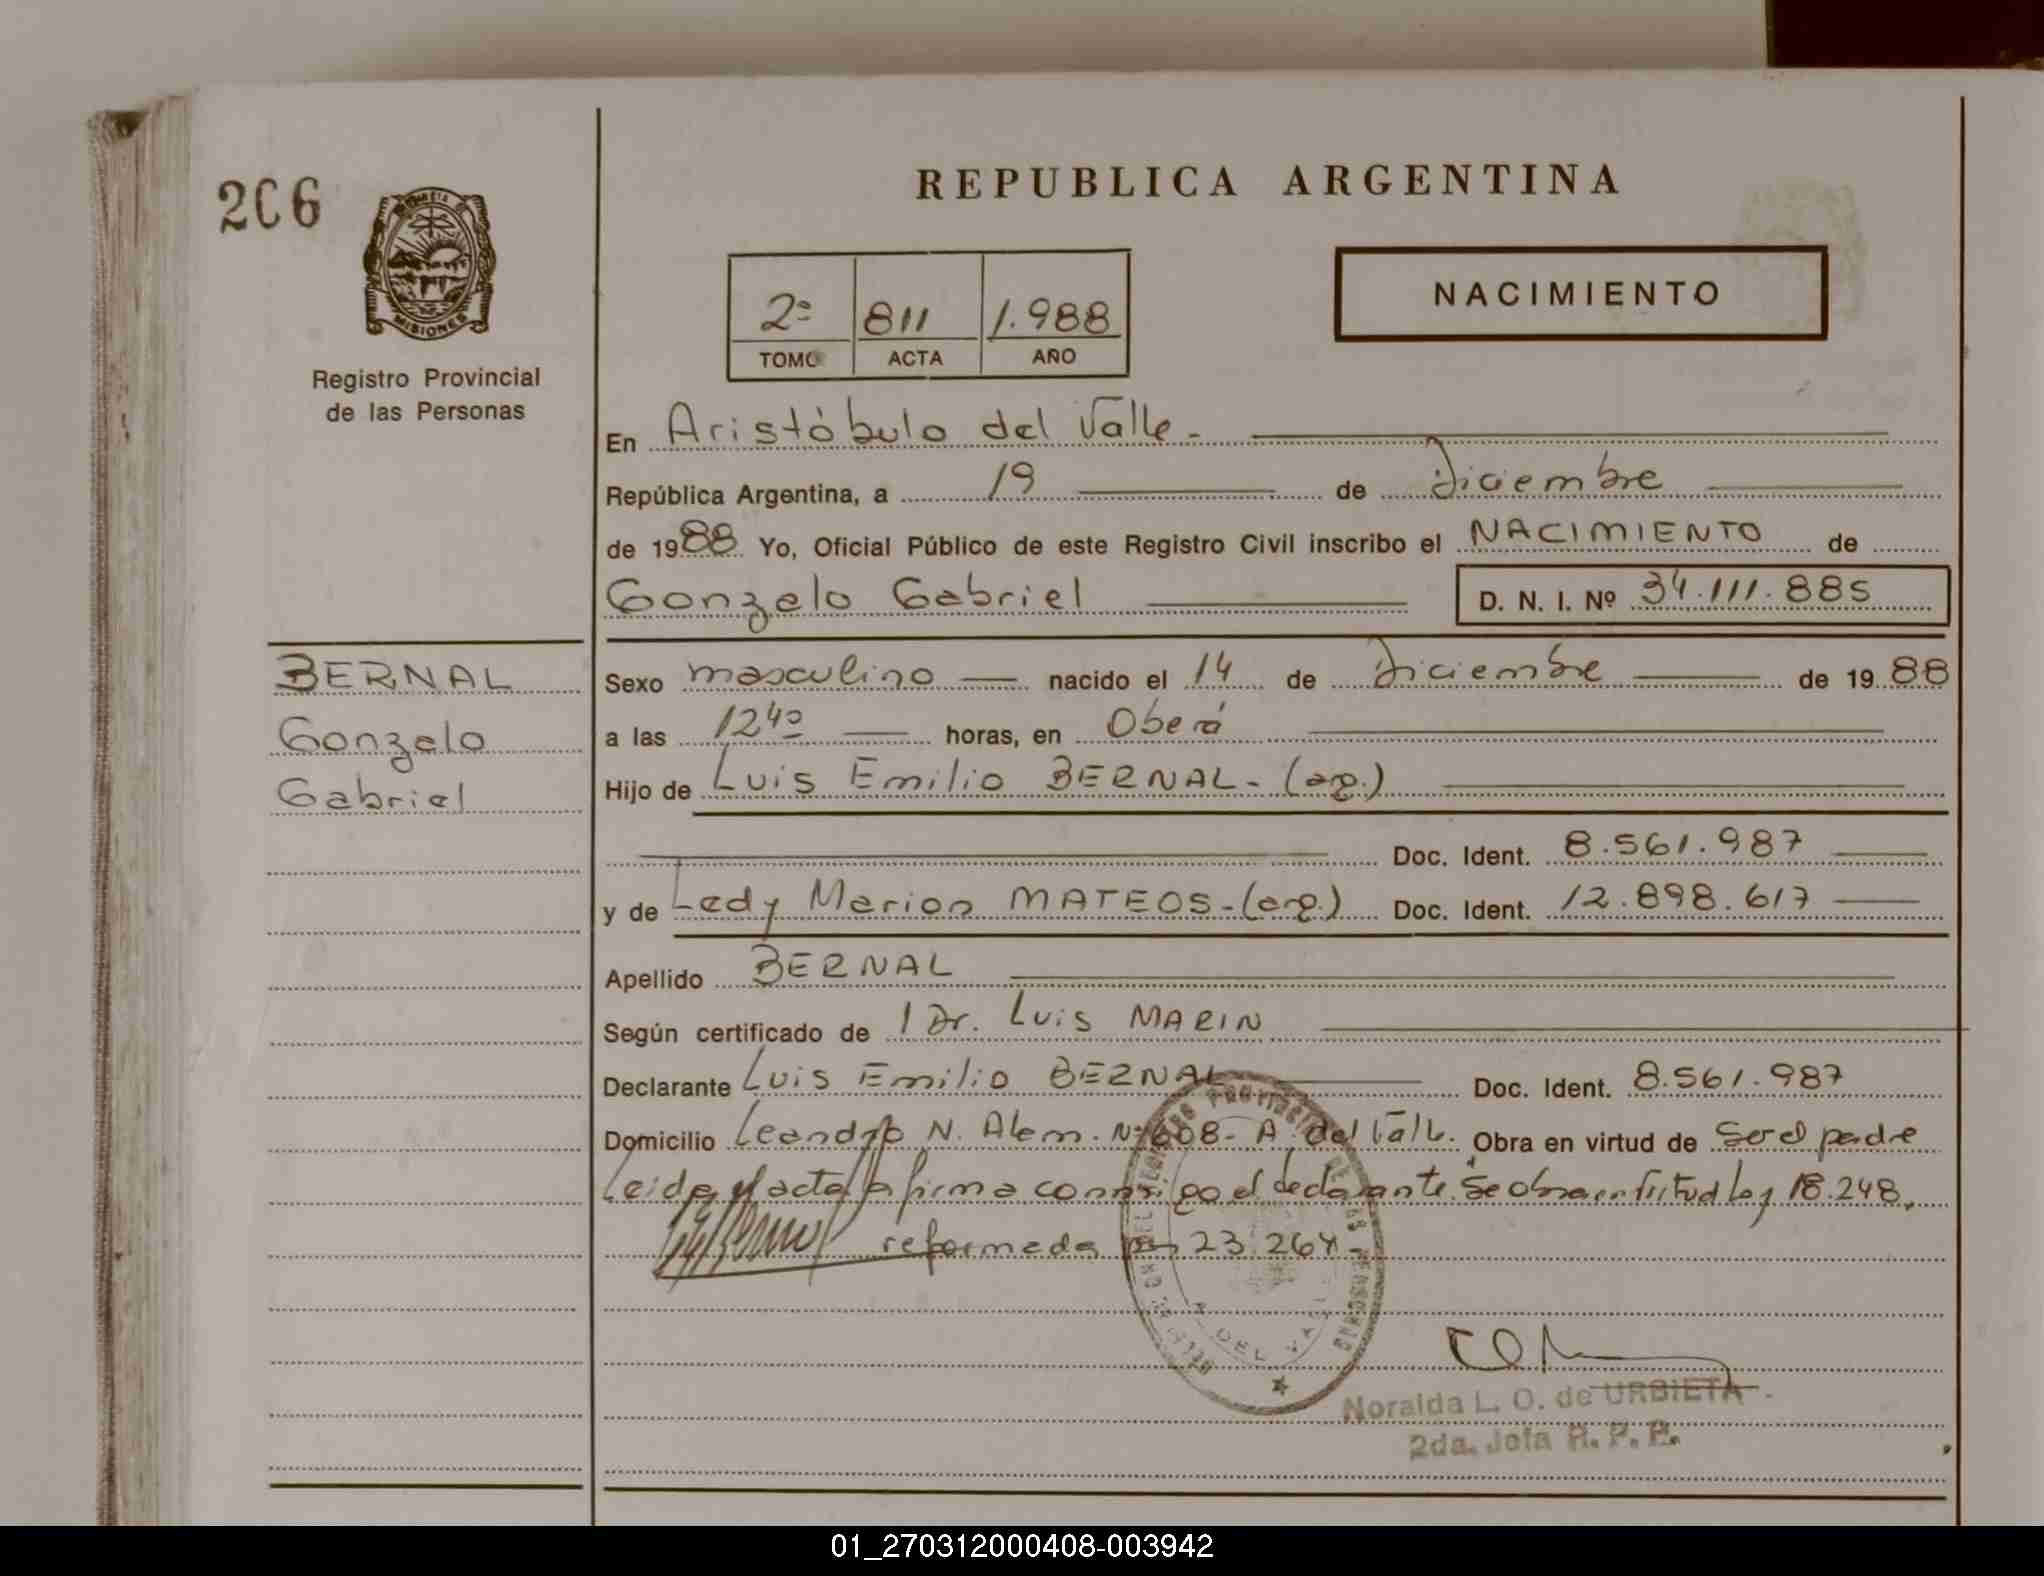 206
MISIONES
Registro Provincial
de las Personas
REPUBLICA ARGENTINA
2º 811 1.988
TOMO ACTA AÑO
NACIMIENTO
En Aristóbulo del Valle -
República Argentina, a 19 de Diciembre
de 1988 Yo, Oficial Público de este Registro Civil inscribo el NACIMIENTO de
Gonzalo Gabriel D. N. I. Nº 34.111.885
BERNAL
Gonzalo
Gabriel
Sexo masculino nacido el 14 de Diciembre de 1988
a las 12⁴⁰ horas, en Oberá
Hijo de Luis Emilio BERNAL - (arg.)
Doc. Ident. 8.561.987
y de Lady Marion MATEOS - (arg.) Doc. Ident. 12.898.617
Apellido BERNAL
Según certificado de 1 Dr. Luis MARIN
Declarante Luis Emilio BERNAL Doc. Ident. 8.561.987
Domicilio Leandro N. Alem. Nº 608 - A. del Valle. Obra en virtud de ser el padre
Leida el acta la firma conmigo el declarante. Se obra en virtud Ley 18.248.
reformada por 23.264 -
A. DEL VALLE
Noralda L. O. de URBIETA
2da. Jefa R. P. P.
01_270312000408-003942